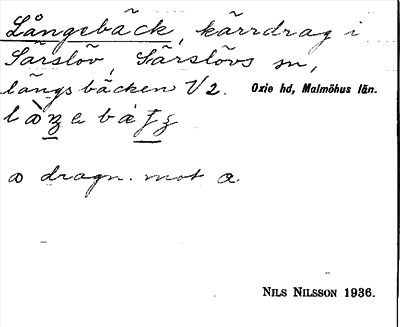 Långsbäck, kärrdrag i
Särslöv, Särslövs sn,
långsbäcken V2. Oxie hd, Malmöhus län.
a dragn. mot a.
NILS NILSSON 1936.